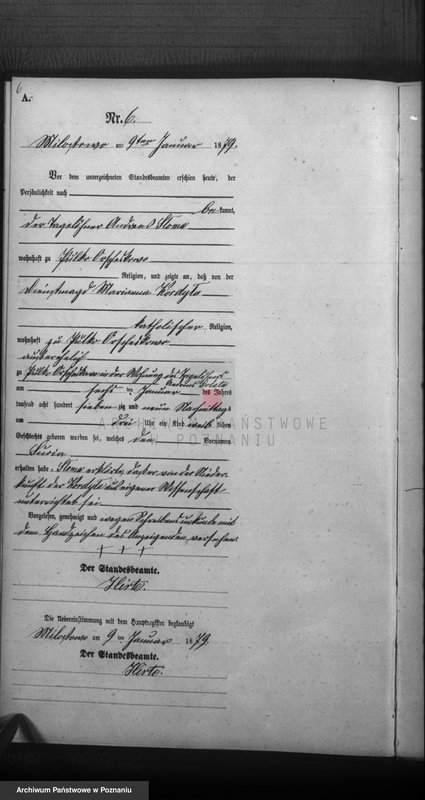 6
A.
Nr. 6.
Milostowo am 9ten Januar 1879.
Vor dem unterzeichneten Standesbeamten erschien heute, der
Persönlichkeit nach
bekannt,
der Tagelöhner Andreas
wohnhaft zu
Religion, und zeigte an, daß von der
Dienstmagd Marianna
katholischer Religion,
wohnhaft zu
außerehelich
zu in der Wohnung des Tagelöhners
Andreas
am sechs ten Januar des Jahres
tausend acht hundert sieben zig und neun Nachmittags
um drei Uhr ein Kind weib lichen
Geschlechts geboren worden sei, welches den Vornamen
Lucia
erhalten habe. erklärte, daß er von der Nieder-
kunft der aus eigener Wissenschaft
unterrichtet sei.
Vorgelesen, genehmigt und wegen Schreibensunkunde mit
dem Handzeichen des Anzeigenden versehen.
+ + +
Der Standesbeamte.
Hirte.
Die Uebereinstimmung mit dem Hauptregister beglaubigt
Milostowo am 9 ten Januar 1879.
Der Standesbeamte.
Hirte.
ARCHIWUM PAŃSTWOWE
W POZNANIU
Archiwum Państwowe w Poznaniu